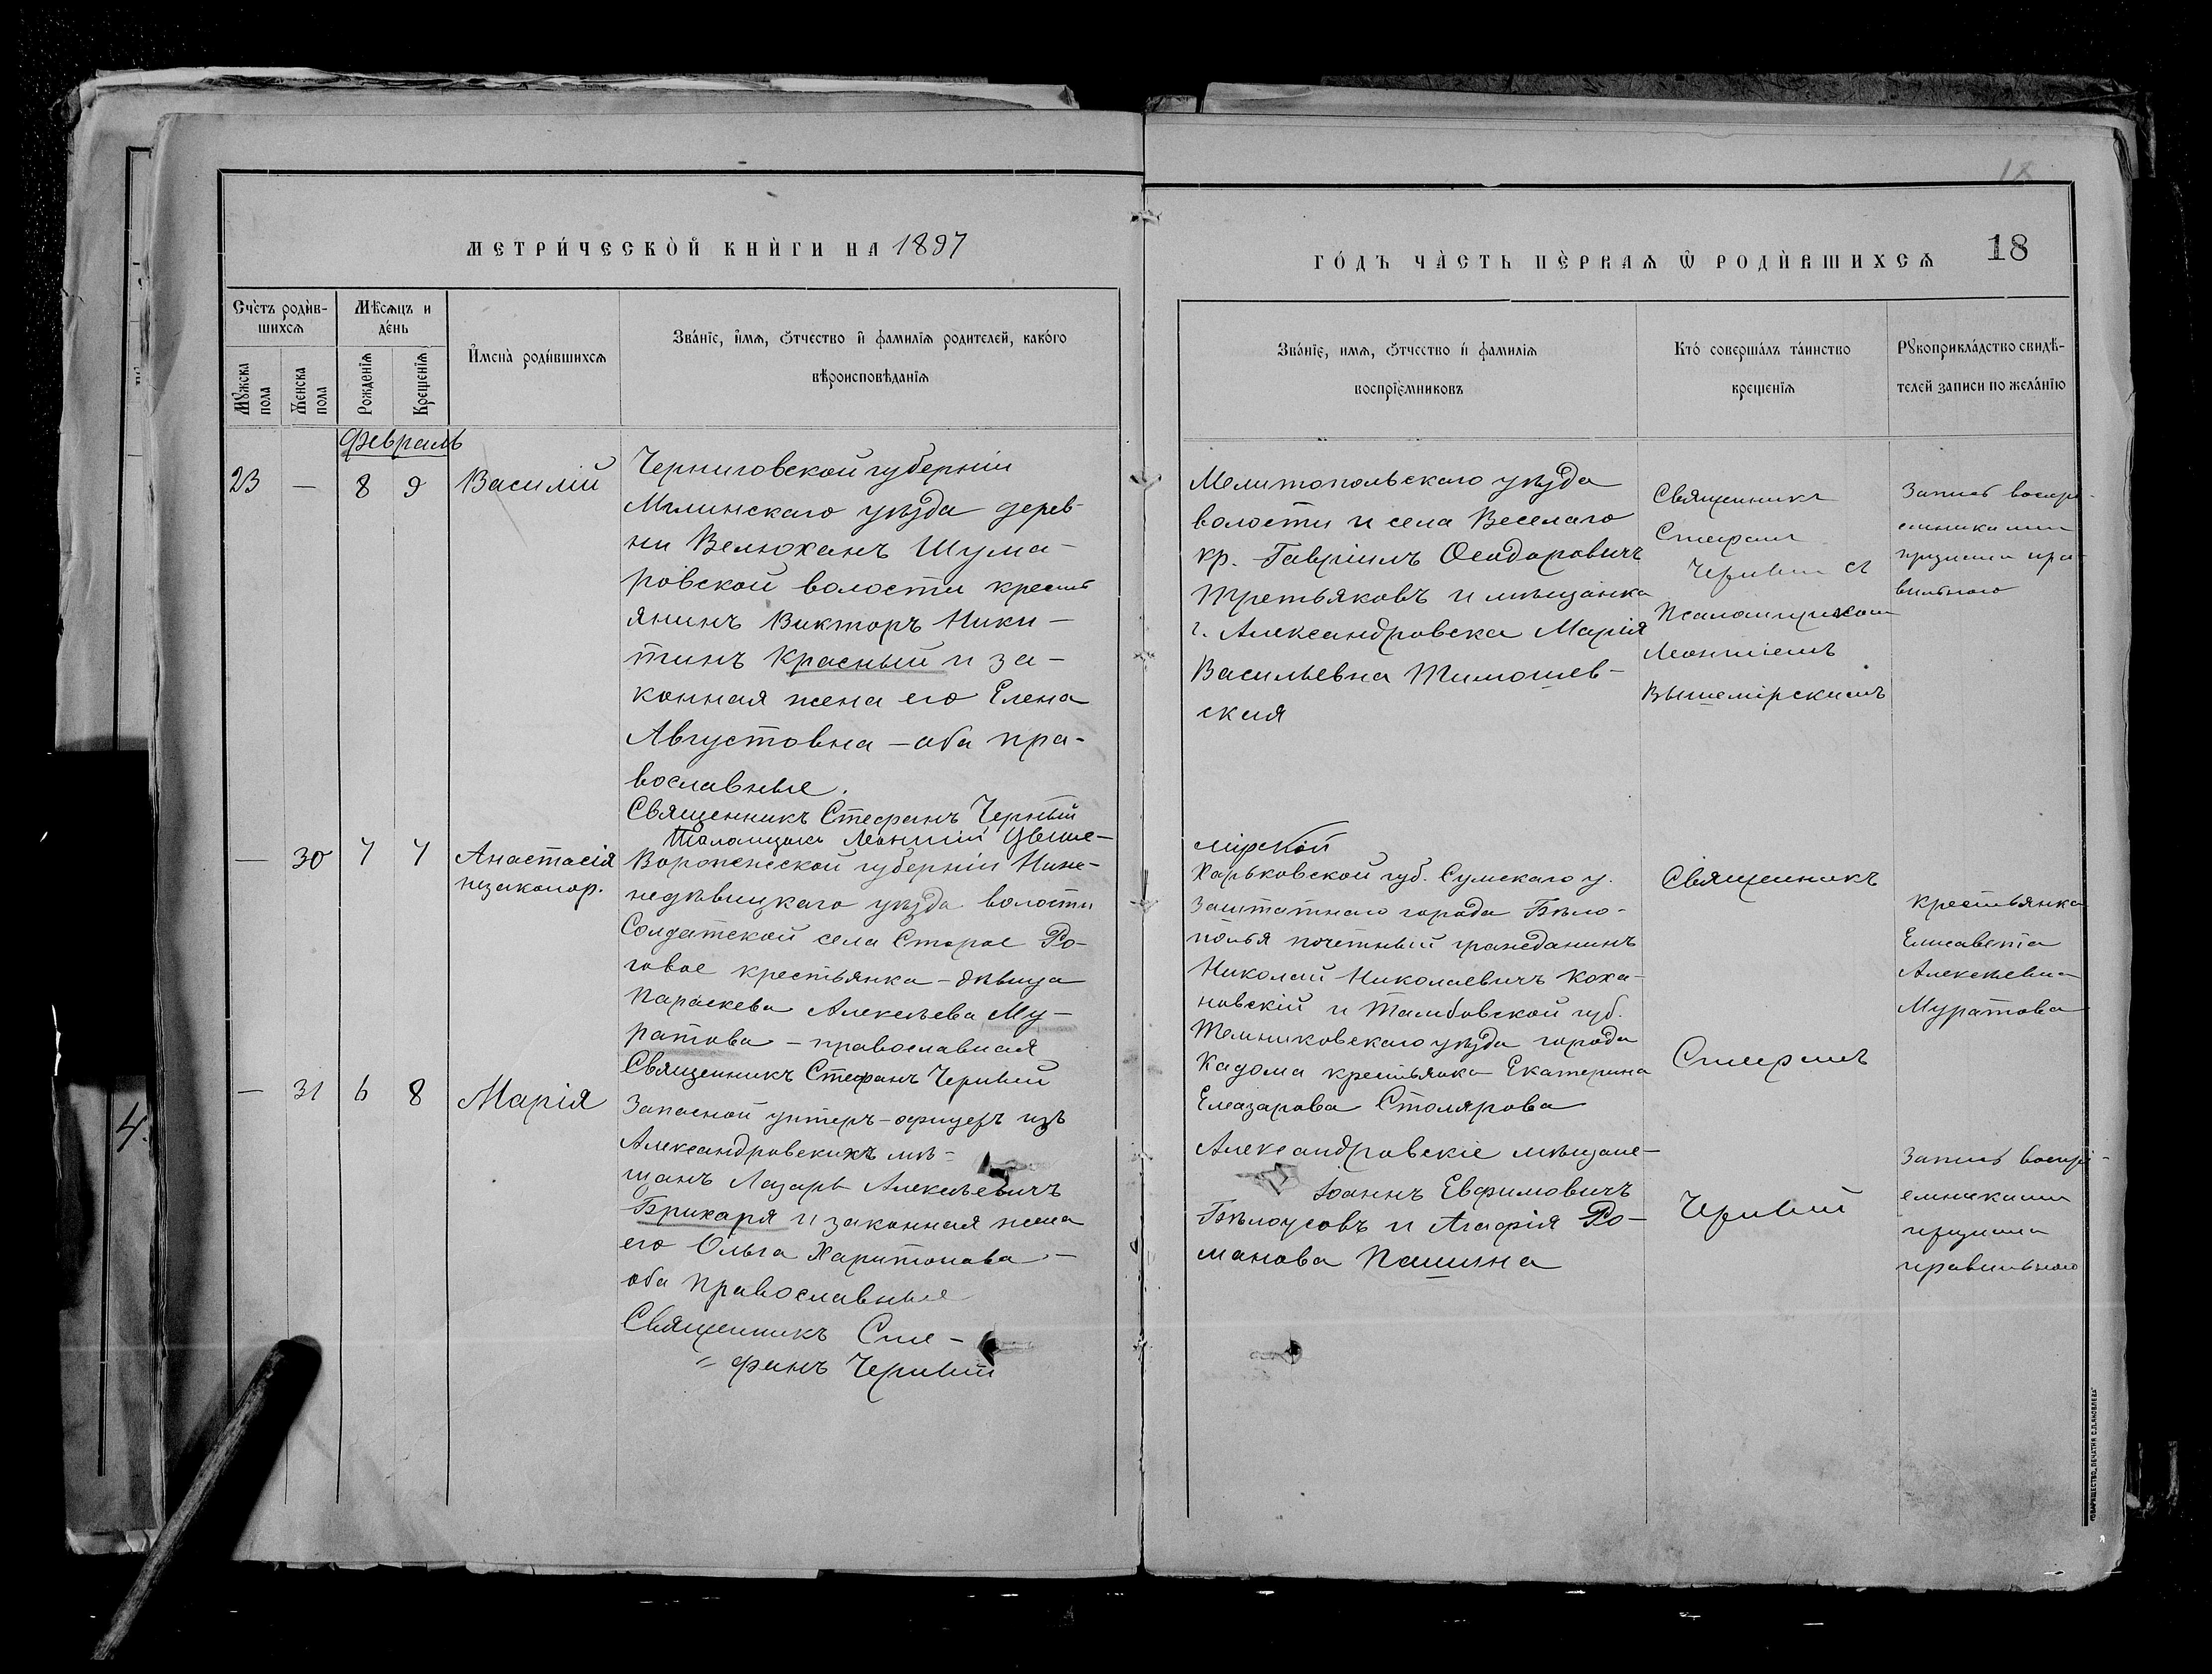 18
МЕТРИ́ЧЕСКО́Й КНИ́ГИ НА 1897
ГО́ДЪ ЧА́СТЬ ПЕ́РВАѦ Ѿ РОДИ́ВШИХСѦ 18
Счетъ роди́в-
шихсѧ
Мꙋжска
пола
Женска
пола
Мѣсѧцъ и
де́нь
Рожденїѧ
Крещенїѧ
И҆мена̀ роди́вшихсѧ
Зва́нїе, и҆мѧ, ѻтчество и҆ фамилїѧ родителей, како́го
вѣроисповѣданїѧ
Зва́нїе, имѧ, ѻтчество и҆ фамилїѧ
воспрїемниковъ
Кто̀ совершалъ та́инство
крещенїѧ
Рꙋкоприкла́дство свидѣ-
телей записи по жела́нїю
Февраль
23 — 8 9 Василій
Черниговской губерніи
Мглинскаго уѣзда дерев-
ни Велюханъ Шума-
ровской волости кресть
янинъ Викторъ Ники-
тинъ Красный и за-
конная жена его Елена
Августовна — оба пра-
вославные.
Священникъ Стефанъ Черный
Псаломщикъ Леонтій Выше-
Мелитопольскаго уѣзда
волости и села Веселаго
кр. Гавріилъ Ѳеодоровичъ
Третьяковъ и мѣщанка
г. Александровска Марія
Васильевна Тимошев-
ская
мірской
Священникъ
Стефанъ
Черный съ
Псаломщикомъ
Леонтіемъ
Вышемірскимъ
Запись воспрі-
емниками
признана пра-
вильною
— 30 7 7 Анастасія
незаконор.
Воронежской губерніи Ниж-
недѣвицкаго уѣзда волости
Солдатской села Старое Ро-
говое крестьянка-дѣвица
Параскева Алексѣева Му-
ратова — православная
Священникъ Стефанъ Черный
Харьковской губ. Сумскаго у.
заштатнаго города Бѣло-
полья почетный гражданинъ
Николай Николаевичъ Коха-
новскій и Тамбовской губ.
Темниковскаго уѣзда города
Кадома крестьянка Екатерина
Елеазарова Столярова
Священникъ
Стефанъ
Крестьянка
Елисавета
Алексѣевна
Муратова
— 31 6 8 Марія
Запасной унтеръ-офицеръ изъ
Александровскихъ мѣ-
щанъ Лазарь Алексѣевичъ
Брихаря и законная жена
его Ольга Харитонова —
оба православные
Священникъ Сте-
фанъ Черный
Александровскіе мѣщане-
Іоаннъ Евфимовичъ
Бѣлоусовъ и Агафія Ро-
манова Пашина
Черный
Запись воспрі-
емниками
признана
правильною
4.
ТОВАРИЩЕСТВО „ПЕЧАТНЯ С.П.ЯКОВЛЕВА"